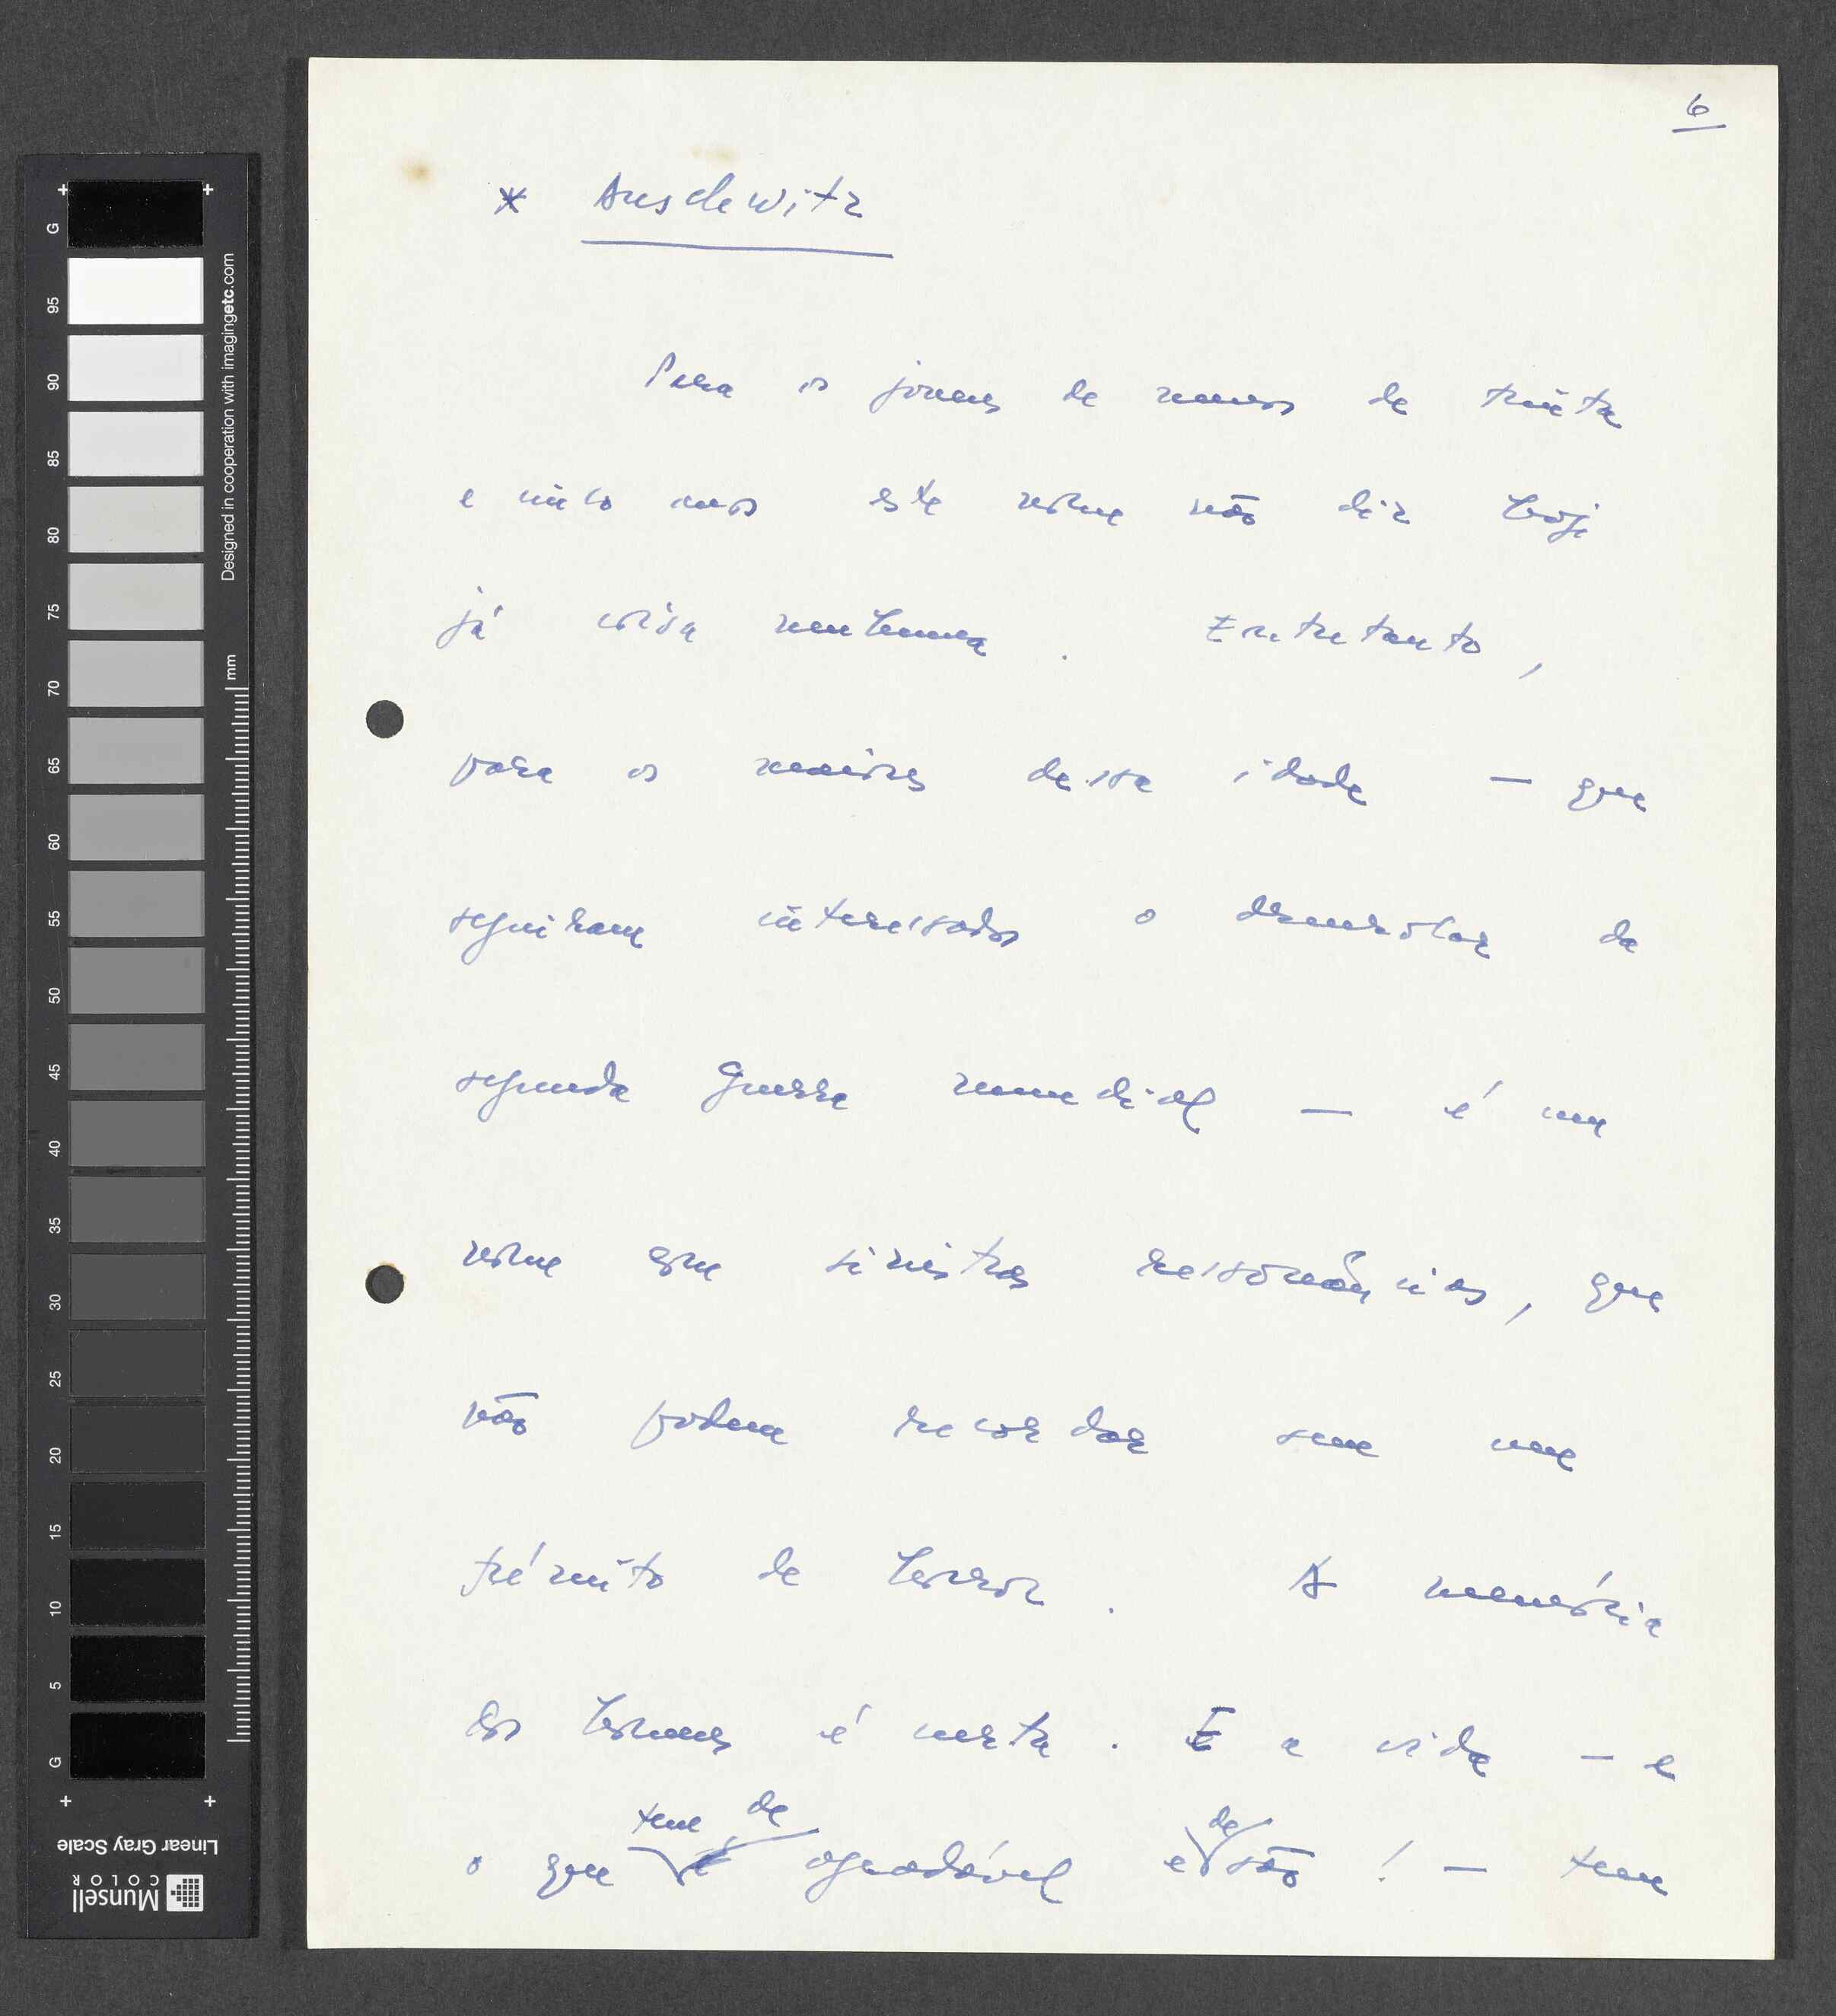 6
* Auschwitz
Para os jovens de menos de trinta
e cinco anos este nome não diz hoje
já coisa nenhuma. Entretanto,
para os maiores dessa idade — que
seguiram interessados o desenrolar da
segunda Guerra mundial — é um
nome com sinistras ressonâncias, que
não podem recordar sem um
frémito de horror. A memória
dos homens é curta. E a vida — e
tem de de
o que é agradável e são! — tem
G 95 90 85 80 75 70 65 60 55 50 45 40 35 30 25 20 15 10 5 G
mm
Designed in cooperation with imagingetc.com
Linear Gray Scale
Munsell
COLOR